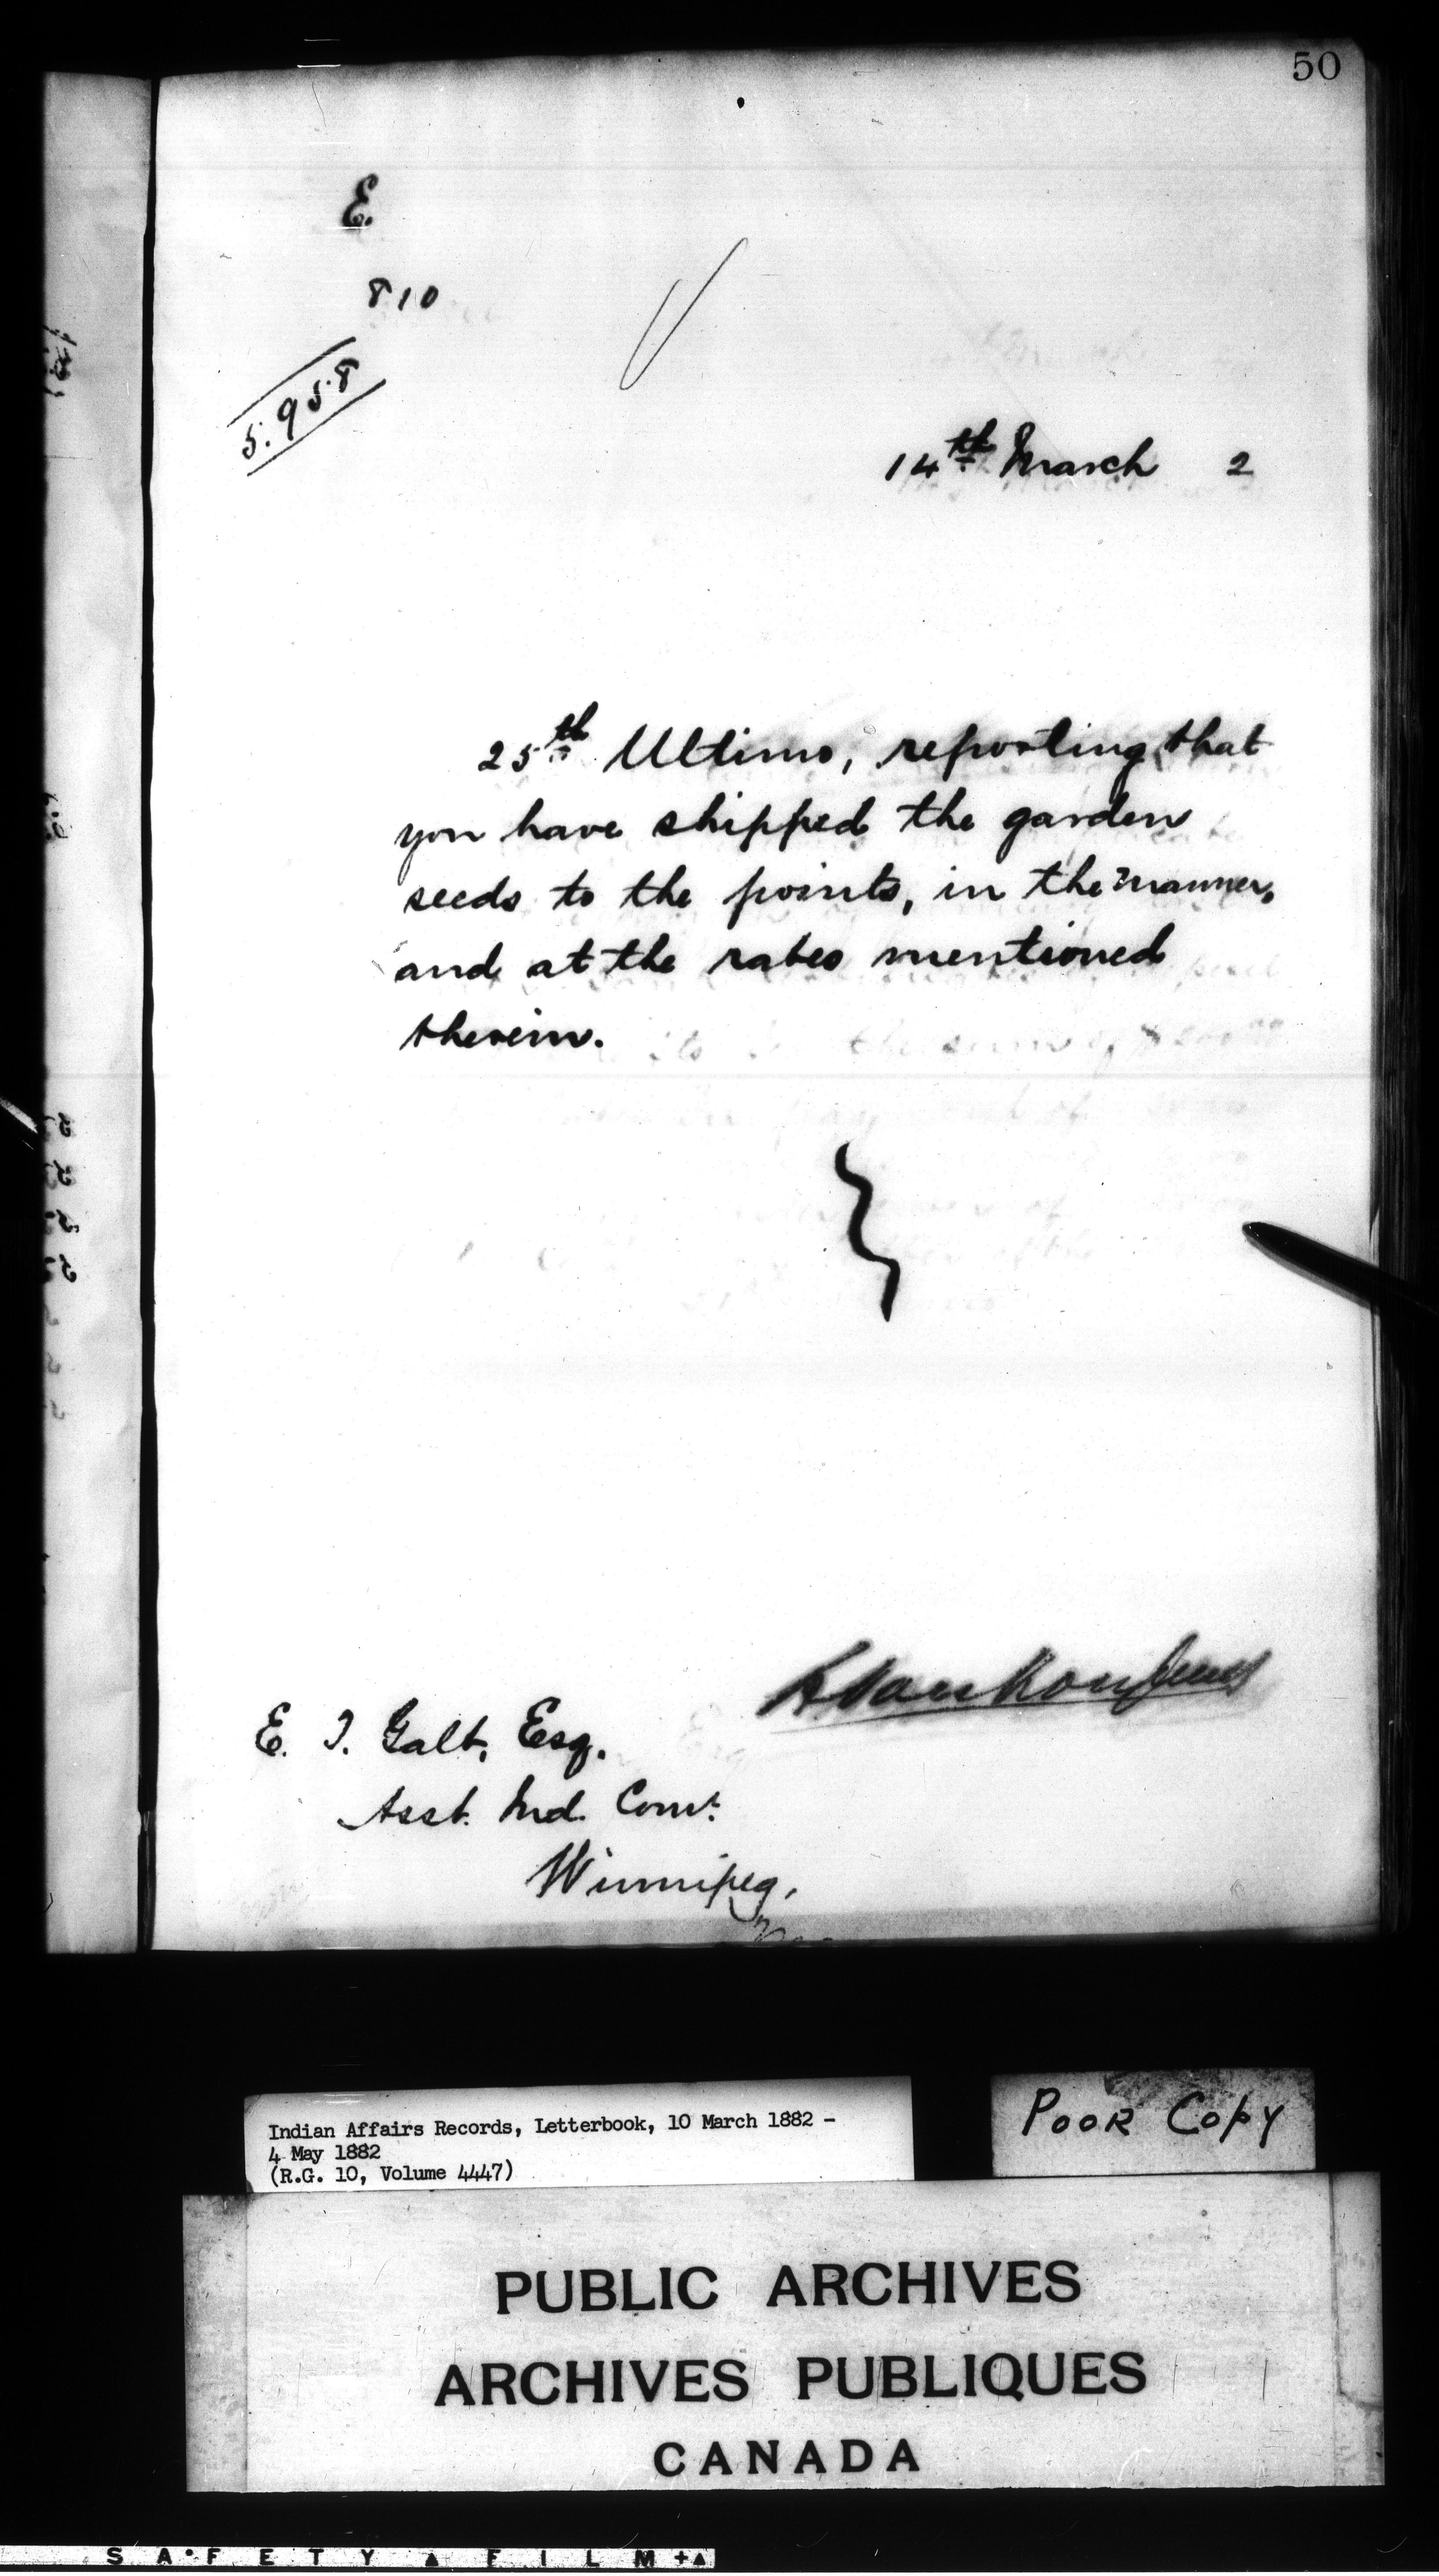 50
E.
810
5.958
14th March 2
25th Ultimo, reporting that
you have shipped the garden
seeds to the points, in the manner,
and at the rates mentioned
therein.
L Vankoughnet
E. T. Galt, Esq.
Asst. Ind. Comr.
Winnipeg,
Indian Affairs Records, Letterbook, 10 March 1882 -
4 May 1882
(R.G. 10, Volume 4447)
POOR COPY
PUBLIC ARCHIVES
ARCHIVES PUBLIQUES
CANADA
SAFETY FILM